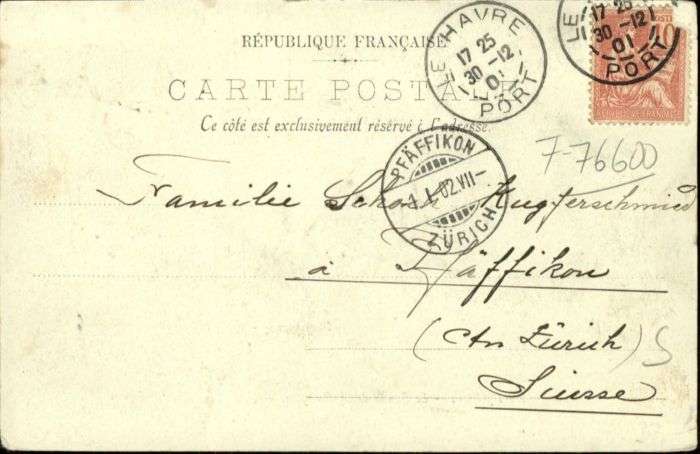 RÉPUBLIQUE FRANÇAISE
CARTE POSTALE
Ce côté est exclusivement réservé à l'adresse.
LE HAVRE
17 25
30 -12
01
PORT
LE
17 25
30 -12
01
PORT
POSTE
10
7-76600
PFÄFFIKON
1.I.02.VII-
ZÜRICH
Familie
à Pfäffikon
(Ctn Zürich) S
Suisse